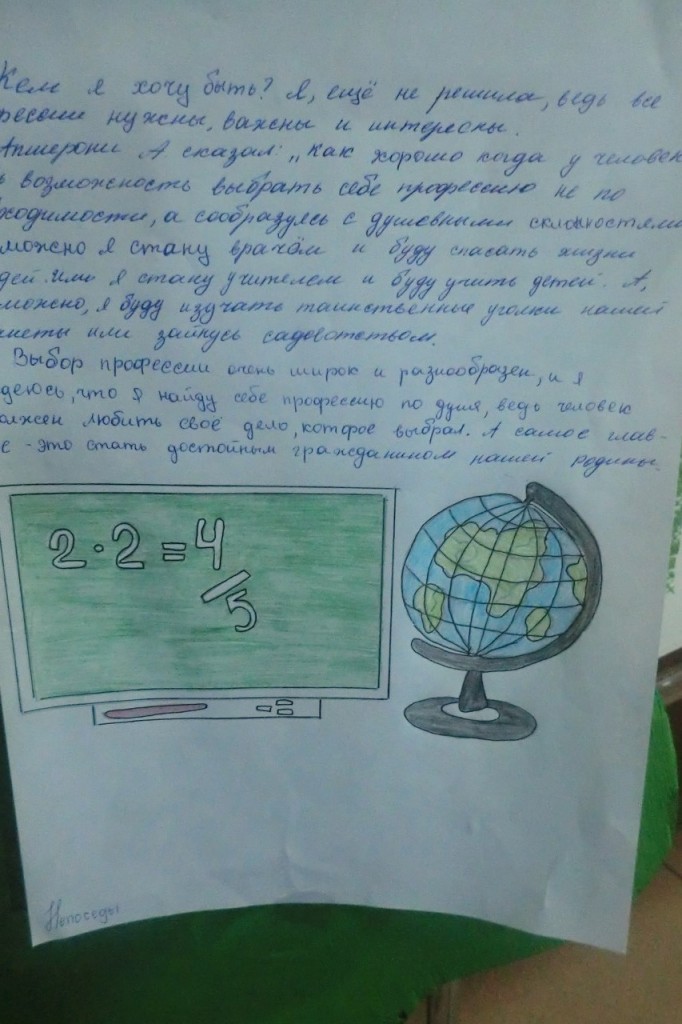 Кем я хочу быть? Я, ещё не решила, ведь все
нужны, важны и интересны.
Апшерони А сказал: „Как хорошо когда у человек
возможность выбрать себе профессию не по
ходимости, а сообразуясь с душевными склонностями
можно я стану врачом и буду спасать жизни
дей. Или я стану учителем и буду учить детей. А,
можно, я буду изучать таинственные уголки нашей
неты или займусь садовотством.
Выбор профессии очень широк и разнообразен, и я
деюсь, что я найду себе профессию по душе, ведь человек
олжен любить своё дело, которое выбрал. А самое глав-
е - это стать достойным гражданином нашей родины.
2·2=4
/5
Непоседы